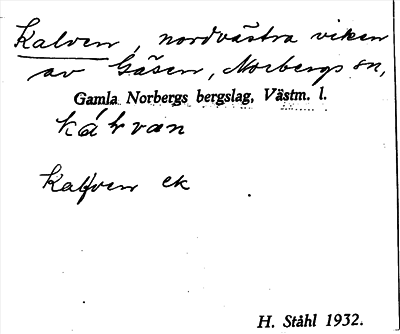 Kalven, nordvästra viken
av Gåsen, Norbergs sn,
Gamla Norbergs bergslag, Västm. l.
kálvan
Kalfven ek
H. Ståhl 1932.